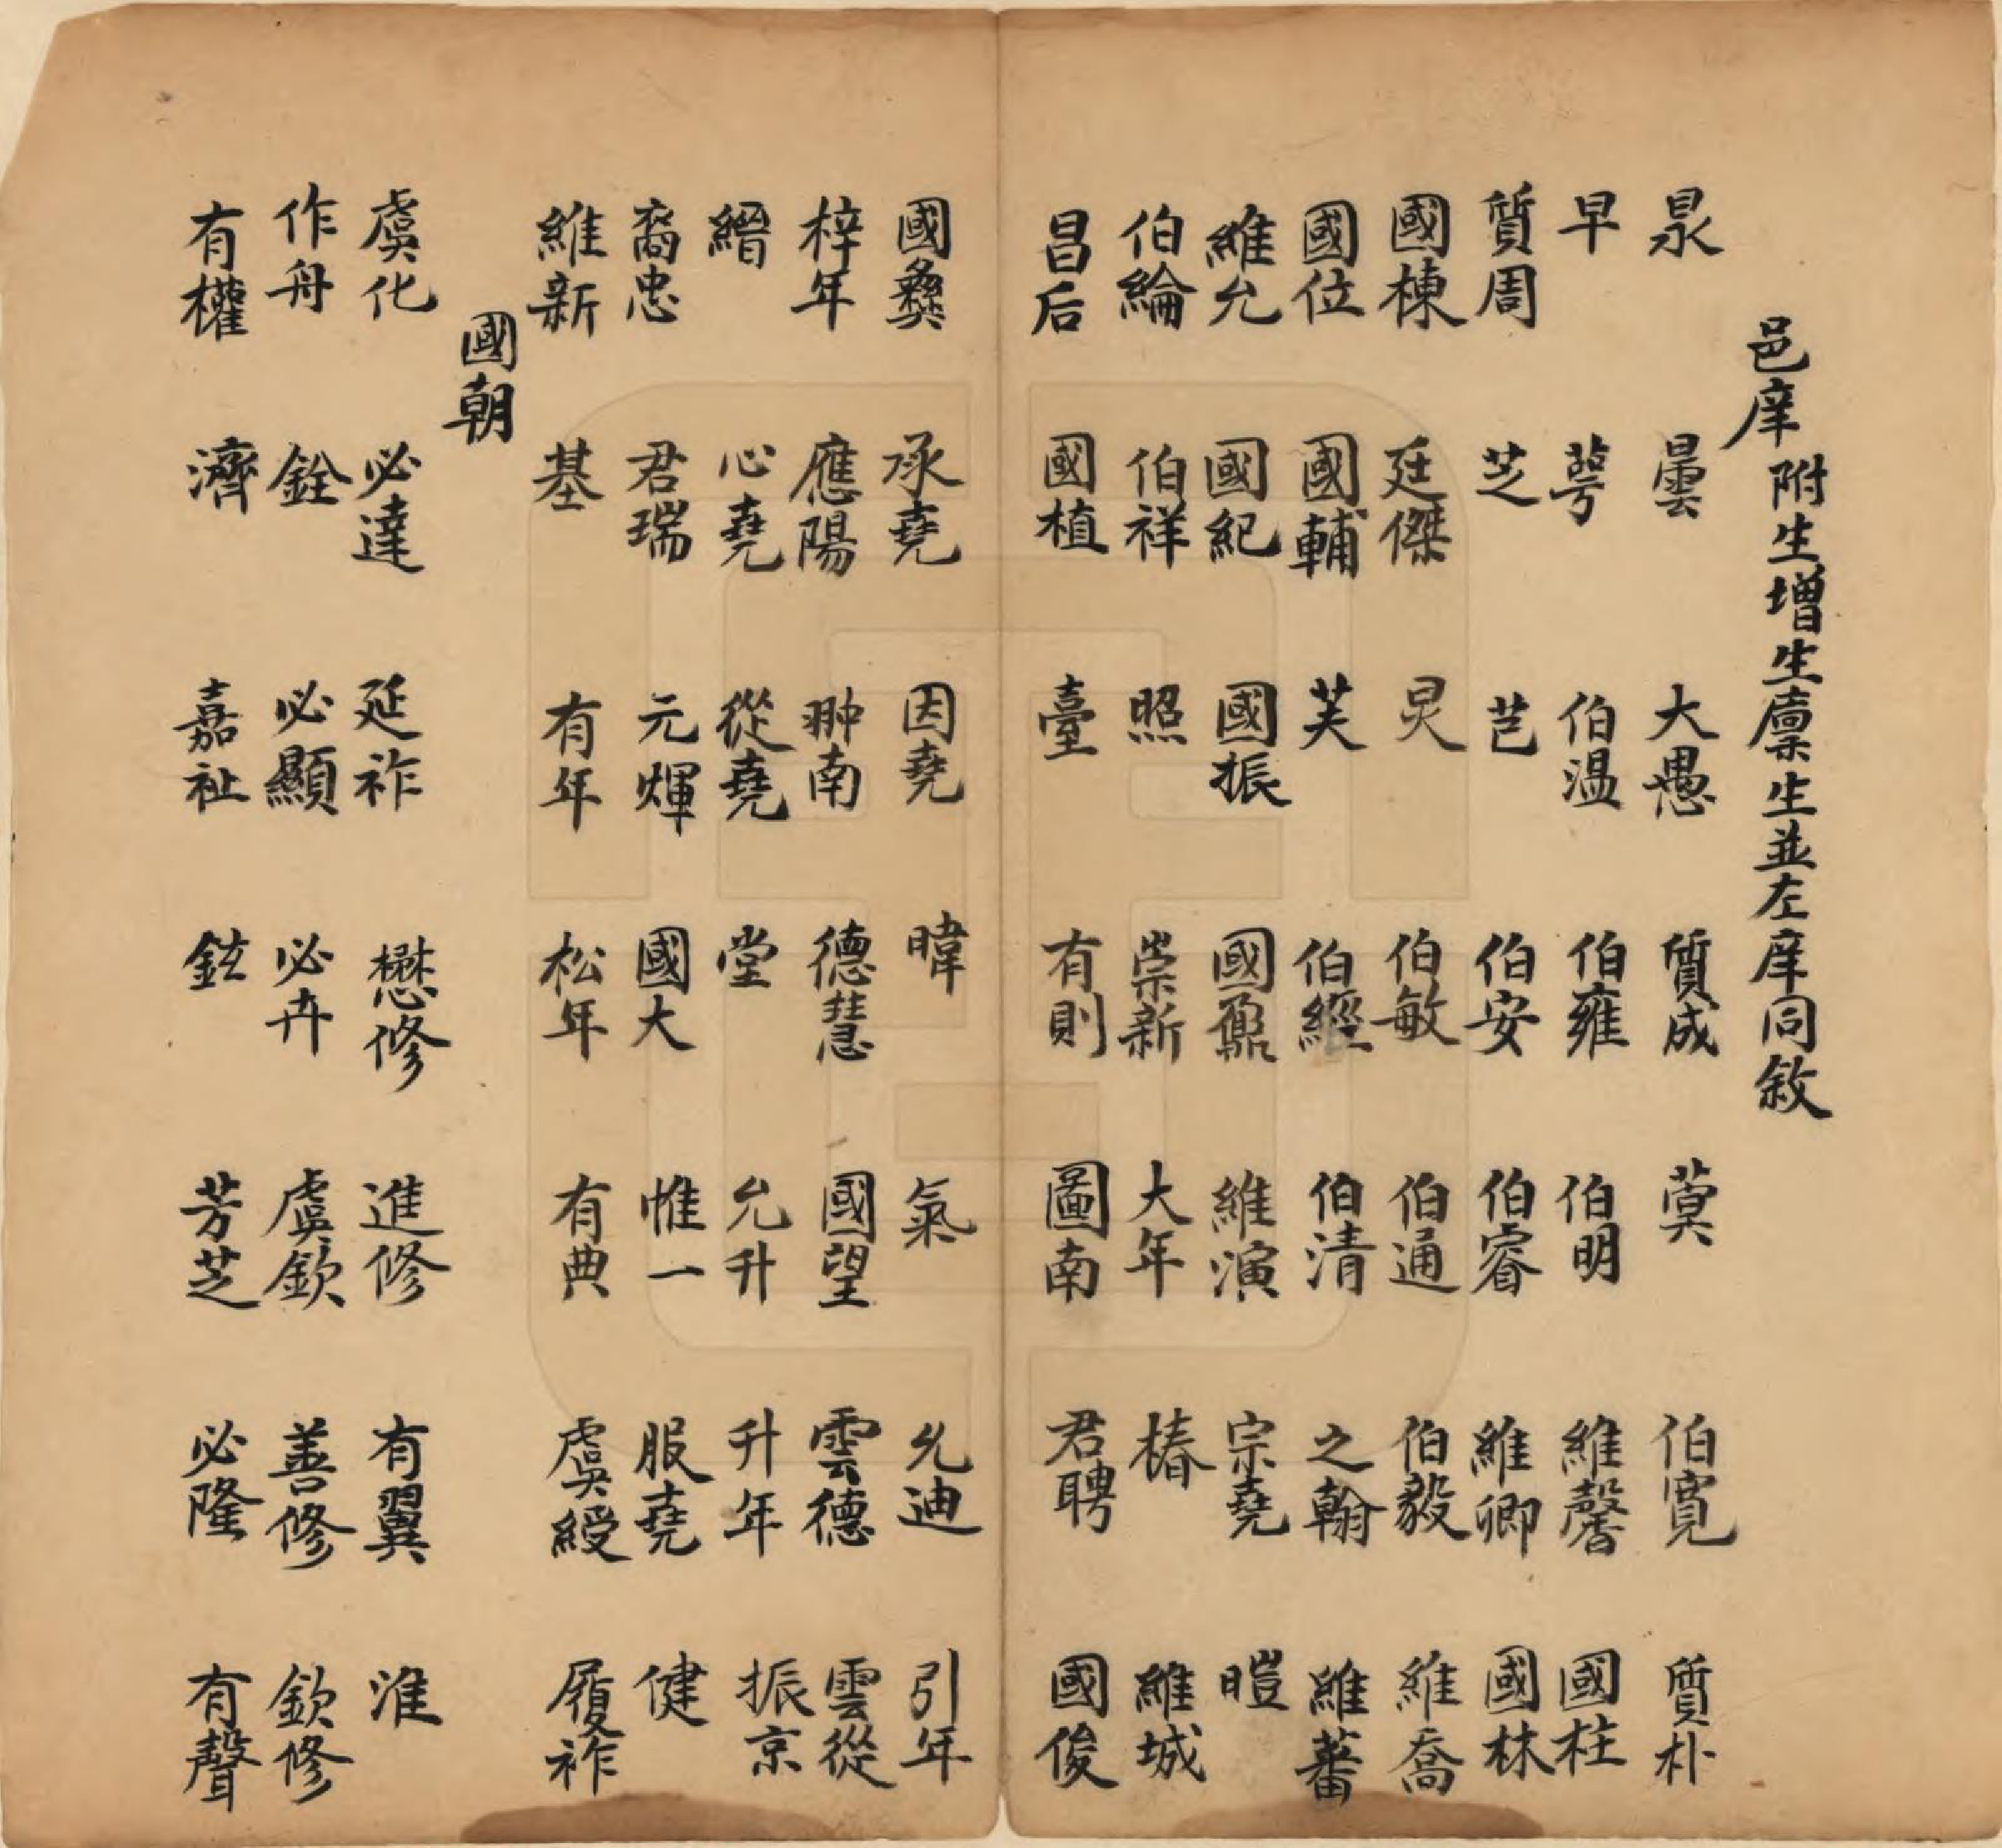 邑庠附生增生廩生並左庠同敘
泉 曇 大愚 質成 蓂 伯寬 質朴
早 萼 伯溫 伯雍 伯明 維馨 國柱
質周 芝 芑 伯安 伯睿 維卿 國林
國棟 廷傑 炅 伯敏 伯通 伯毅 維喬
國位 國輔 芙 伯經 伯清 之翰 維蕃
維允 國紀 國振 國鼐 維演 宗堯 暟
伯綸 伯祥 照 崇新 大年 椿 維城
昌后 國植 臺 有則 圖南 君聘 國俊
國彝 承堯 因堯 暐 氣 允迪 引年
梓年 應陽 翀南 德慧 國望 雲德 雲從
縉 心堯 從堯 堂 允升 升年 振京
裔忠 君瑞 元煇 國大 惟一 服堯 健
維新 基 有年 松年 有典 虞綬 履祚
國朝
虞化 必達 延祚 懋修 進修 有翼 淮
作舟 銓 必顯 必卉 虞欽 善修 欽修
有權 濟 嘉祉 鉉 芳芝 必隆 有聲